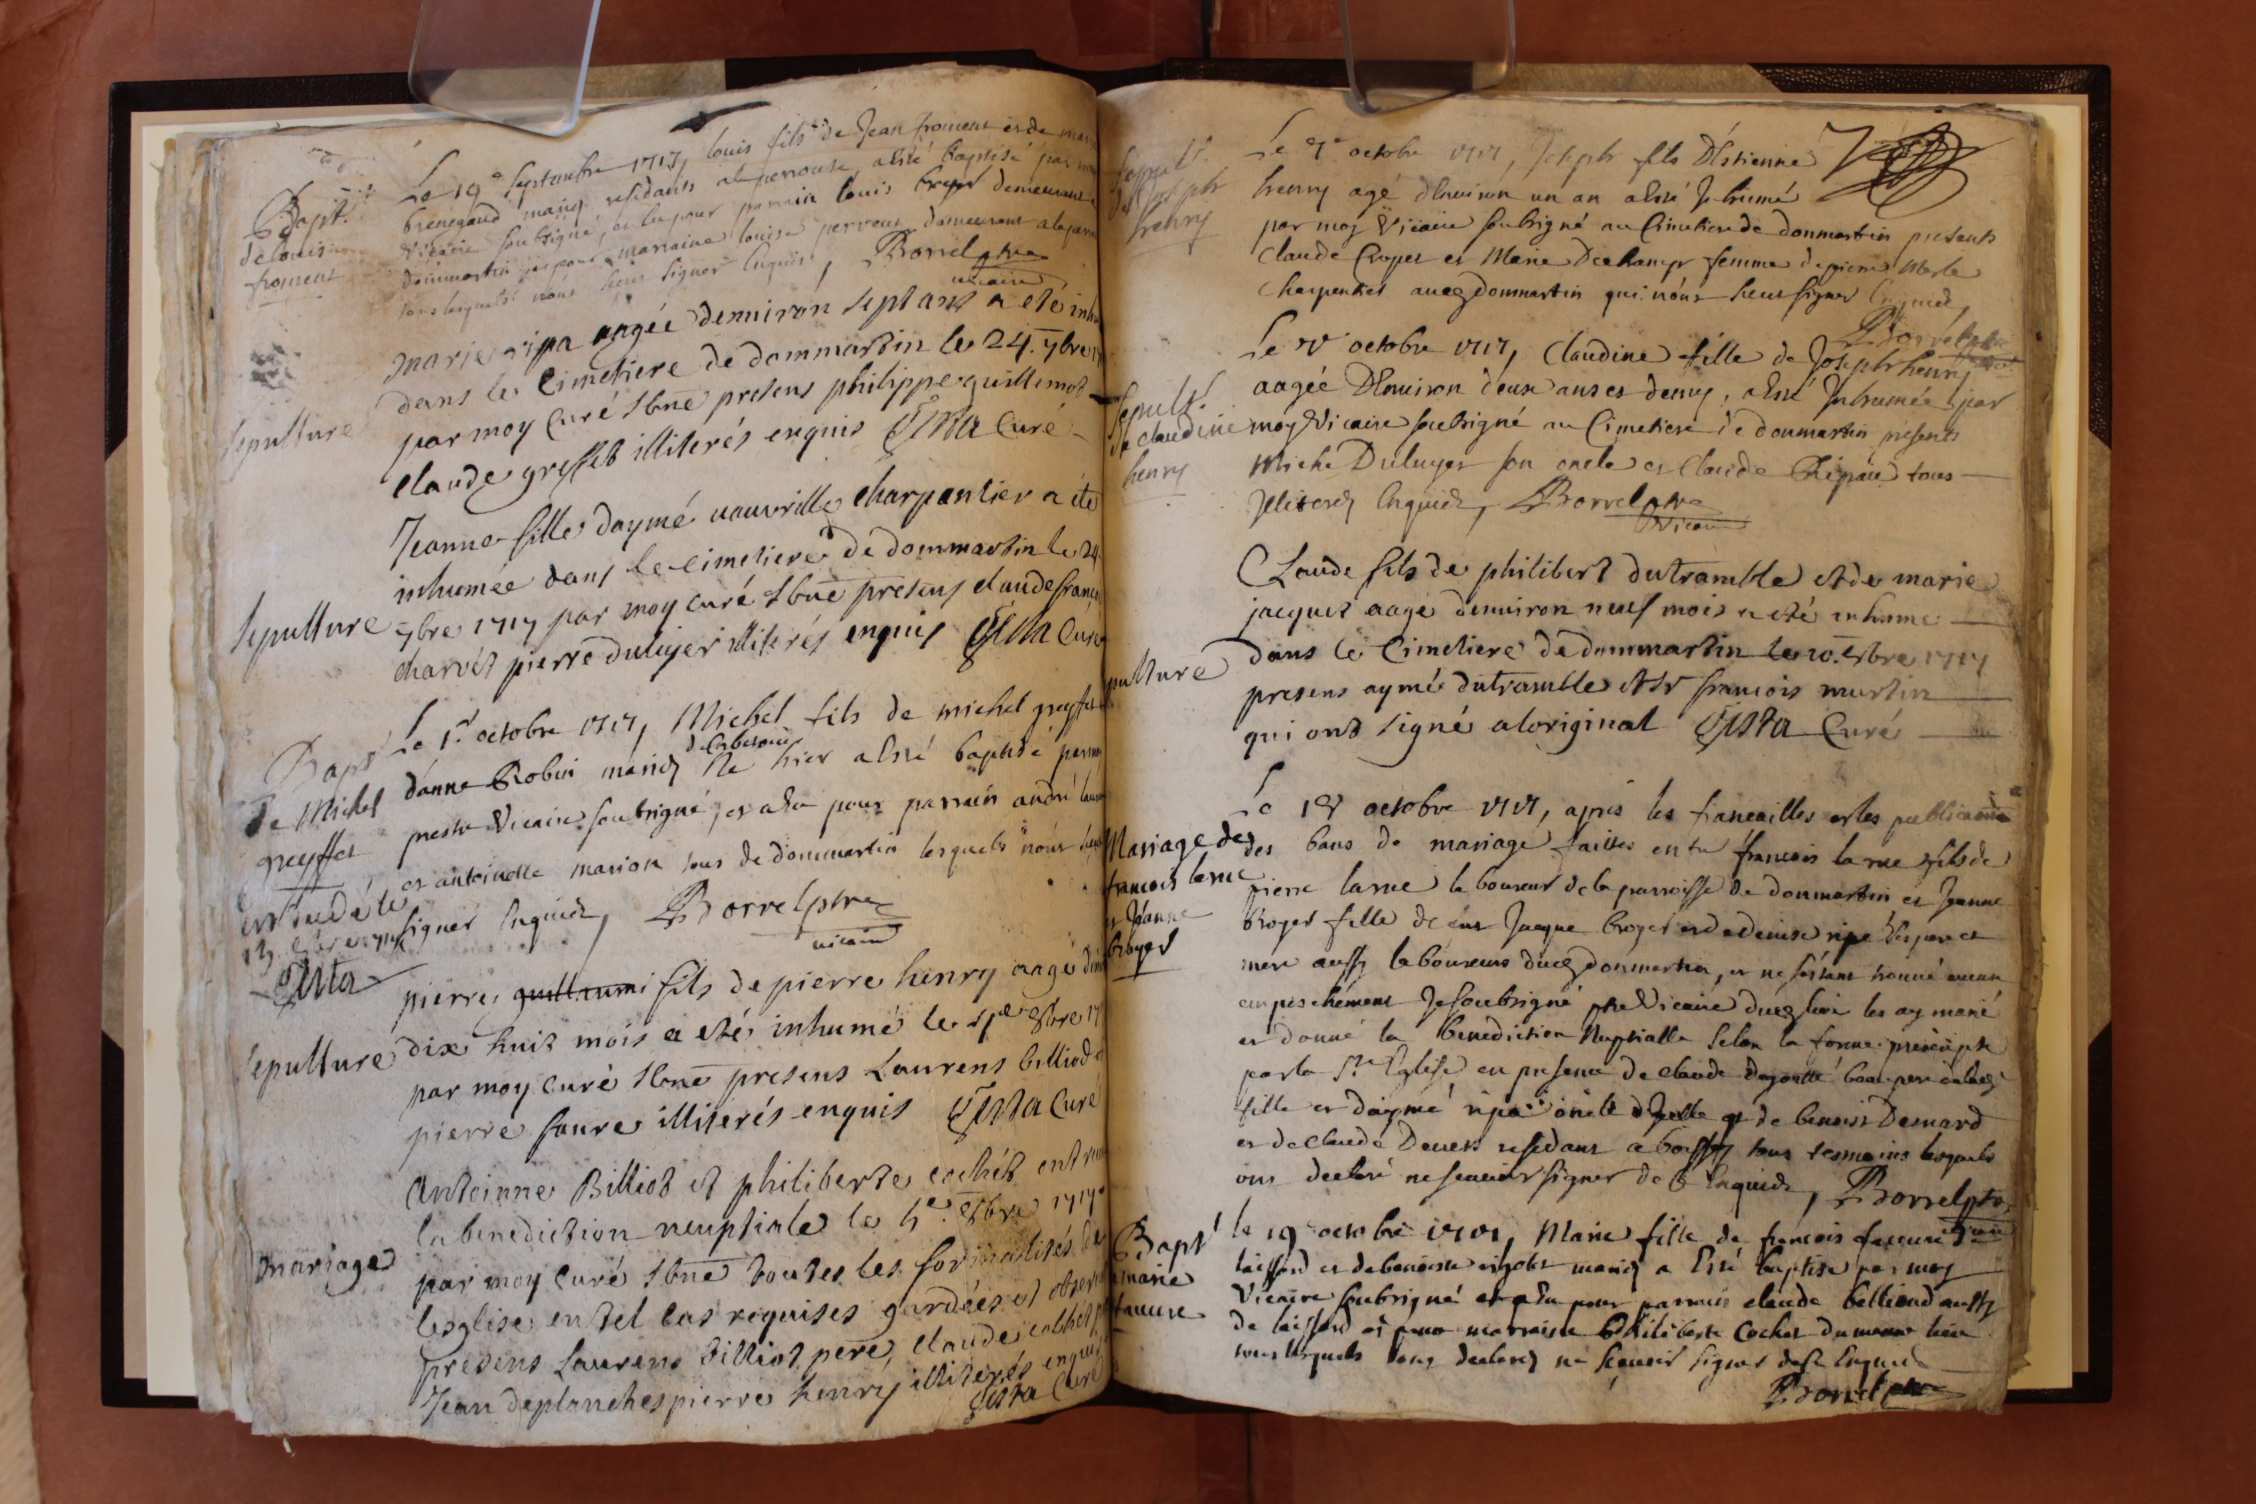 Bapt.
de louis
froment
Le 19e septembre 1717, louis fils de Jean froment et de
brenegaud mariez residants a la perrouse, a esté baptisé par
Vicaire soubsigné, et a eu pour parrain louis broyer demeurant
dommartin et pour marraine louise perroux demeurant a la
tous lesquels nous sceu signer enquis, Borrel ptre
vicaire
Sepulture
marie ripa aagée denuiron sept ans a eté
dans le Cimetiere de dommartin le 24. 7bre
par moy Curé sbne presens philippe guillemot
claude greffet illiterés enquis Gista Curé
Sepulture
Jeanne fille daymé vauvrille charpantier a éte
inhumée dans le cimetiere de dommartin le 24
7bre 1717 par moy curé sbne presens claude françois
charvet pierre duluyer illiterés enquis Gista Curé
Bapt
de Michel
greyffet
est decedé le
Gista
Le 1r octobre 1717, Michel fils de michel greyffet
danne Robin mariez né hier a esté baptisé par
prestre Vicaire soubsigné, et a eu pour parrain andré
et antoinette marion tous de dommartin lesquels nont
signer Enquis, Borrel ptre
vicaire
Sepulture
pierre guillaumi fils de pierre henry aagé
dix huit mois a eté inhumé le 8bre 17
par moy curé sbne presens Laurens billiod
pierre faure illiterés enquis Gista Curé
mariage
Antoinne Billiot et philiberte cochet ont
la benediction neuptiale le 8bre 1717
par moy curé sbne toutes les formalités de
lesglise en tel cas requises gardées et
presens Laurens billiot pere, claude cochet
Jean deplanches pierre henry illiterés enquis
Gista Curé
Sepult
de Joseph
henry
Le 7e octobre 1717, Joseph fils Destienne
henry agé denuiron un an a esté Inhumé
par moy Vicaire soubsigné au Cimetiere de donmartin presents
Claude Broyer et Marie Dechamps femme de pierre Merle
charpentier audt donmartin qui nont sceu signer Enquis,
Borrel ptre
Sepult.
de claudine
henry
Le octobre 1717, Claudine fille de Joseph henry
aagée Denuiron deux ans et demy, a esté Inhumée par
moy Vicaire soubsigné au Cimetiere de donmartin presents
Miche Duluyer son oncle et Claude Ripaü tous
Illiterez Enquis, Borrel ptre
Vicaire
pulture
Claude fils de philibert dutramble et de marie
jacquet aagé denuiron neuf mois a eté inhumé
dans le Cimetiere de dommartin le 10. 8bre 1717
presens aymé dutramble et Sr françois murtin
qui ont signé aloriginal Gista Curé
Mariage de
francois larue
et Jeanne
broyer
Le octobre 1717, apres les fiancailles et les publications
des bans de mariage faittes entre francois larue fils de
pierre larue laboureur de la parroisse de donmartin et Jeanne
Broyer fille de Jacque broyer et de denise ripe ses pere et
mere aussy laboureurs dudt donmartin, et ne sestant trouvé aucun
empeschement Je soubsigné ptre Vicaire dudt lieu les ay marié
et donné la benediction Nuptialle selon la forme prescripte
par la Ste Eglise en presence de claude beau pere
fille et daymé ripa oncle et de benoist Desnard
et de claude Deuers residant a tous tesmoins lesquels
ont declaré ne scauoir signer de ce Enquis, Borrel ptre
vicaire
Bapt
marie
fauure
le 19 octobre 1717, Marie fille de francois fauure
et de benoiste mariez a Esté baptisée par moy
Vicaire soubsigné et a eu pour parrain claude billioud aussy
de et pour marraine Philiberte Cochet du mesme lieu
tous lesquels ont declaré ne scauoir signer de ce Enquis
Borrel ptre